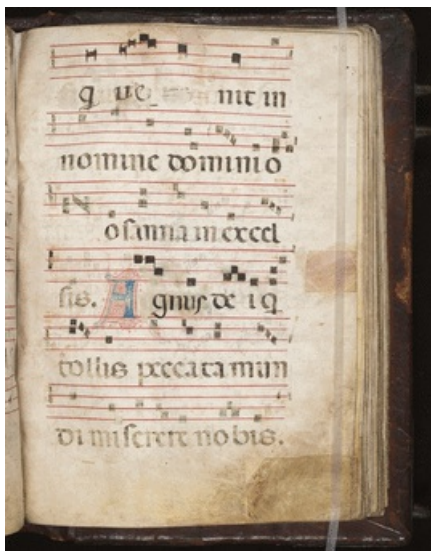 que nit in
nomine dominio
osanna in excel
sis. Agnus de i q
tollis peccata mun
di miserere nobis.